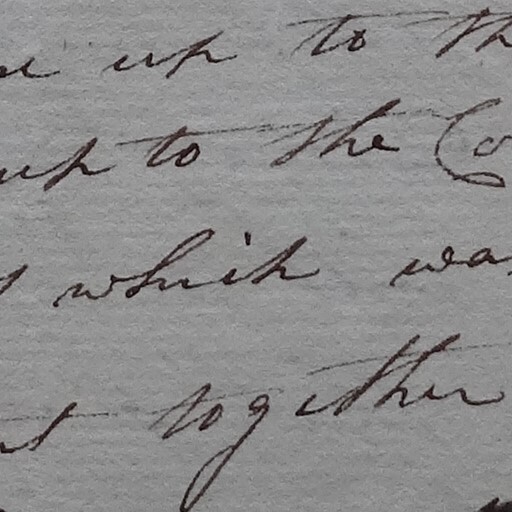 up to th
up to the Co
which wa
together